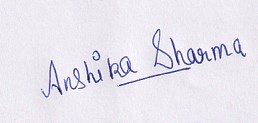 Anshika Sharma